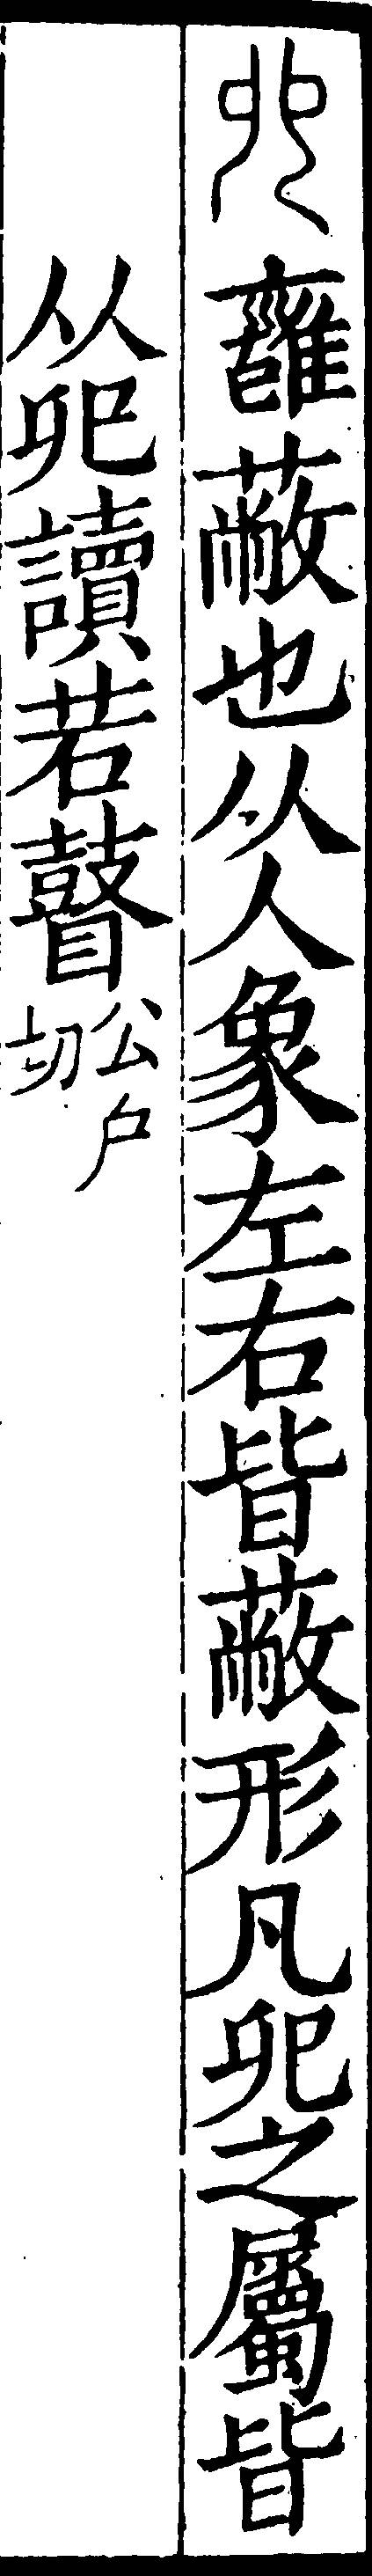 𠑹廱蔽也从人象左右皆蔽形凡𠑹之屬皆
从𠑹讀若瞽公户切